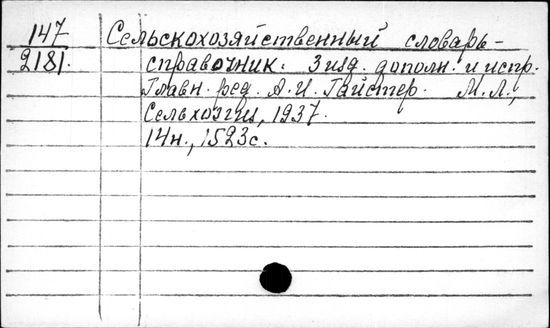 147 Сельскохозяйственный словарь-
2181. справочник. 3 изд. дополн. и испр.
Главн. ред. А.И. Гайстер. М.Л.,
Сельхозгиз, 1937.
14н., 1523с.